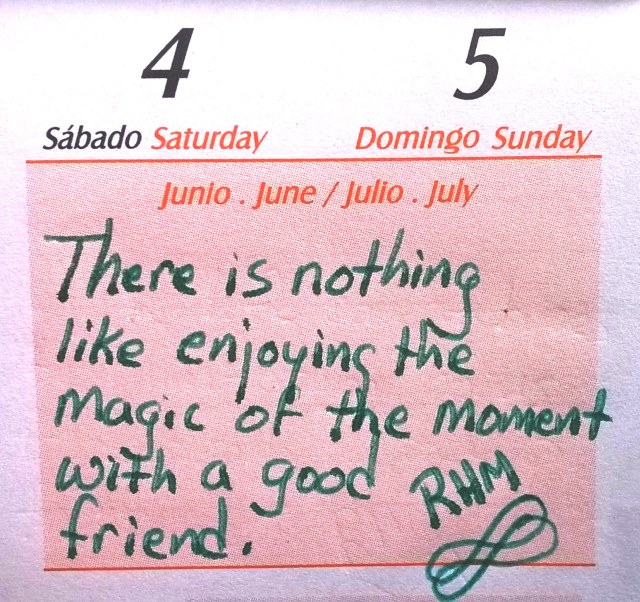 4 5
Sábado Saturday Domingo Sunday
Junio . June / Julio . July
There is nothing
like enjoying the
magic of the moment
with a good
friend.
RHM